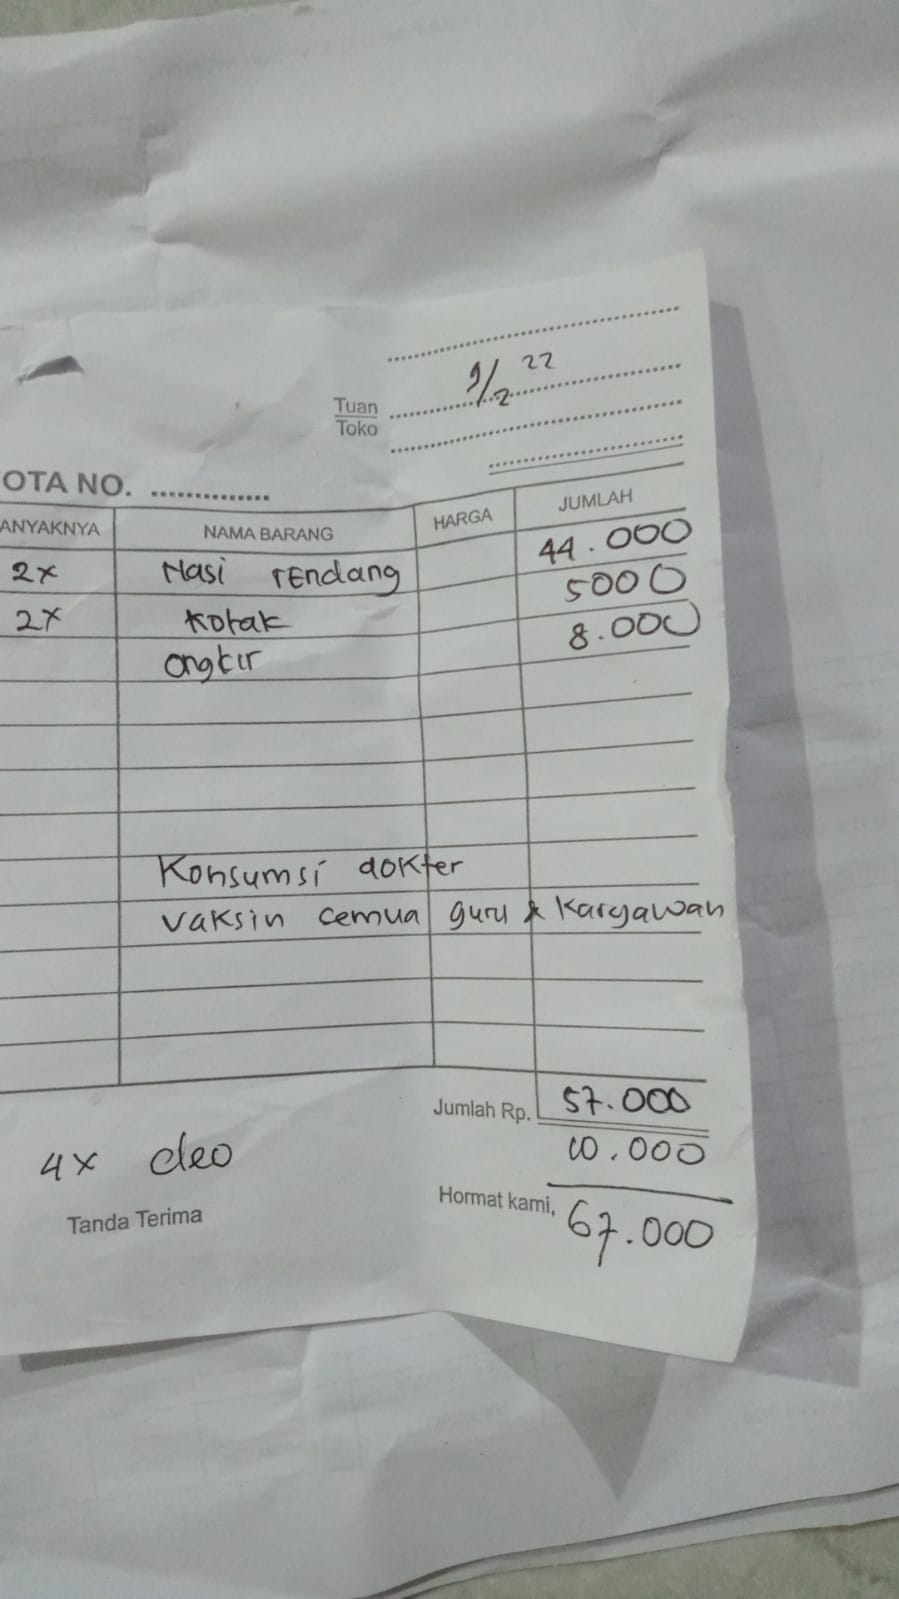 9/2 22
Tuan
Toko
OTA NO. ..............
ANYAKNYA NAMA BARANG HARGA JUMLAH
2x Nasi rendang 44.000
2x Kotak 5000
ongkir 8.000
Konsumsi dokter
vaksin cemua guru & Karyawan
Jumlah Rp. 57.000
4x cleo 10.000
Tanda Terima Hormat kami, 67.000